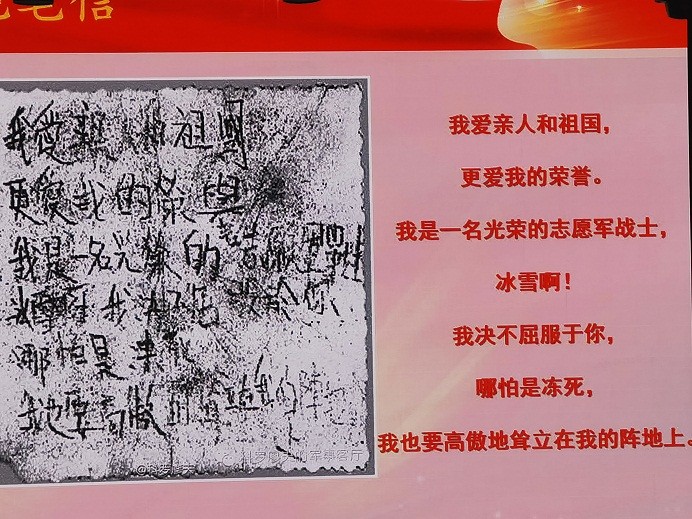 绝笔信
我愛親人和祖國
更愛我的荣譽
我是一名光榮的志願軍戰士
冰雪啊我决不屈服於你
哪怕是凍死
我也要高傲的
我爱亲人和祖国，
更爱我的荣誉。
我是一名光荣的志愿军战士，
冰雪啊！
我决不屈服于你，
哪怕是冻死，
我也要高傲地耸立在我的阵地上。